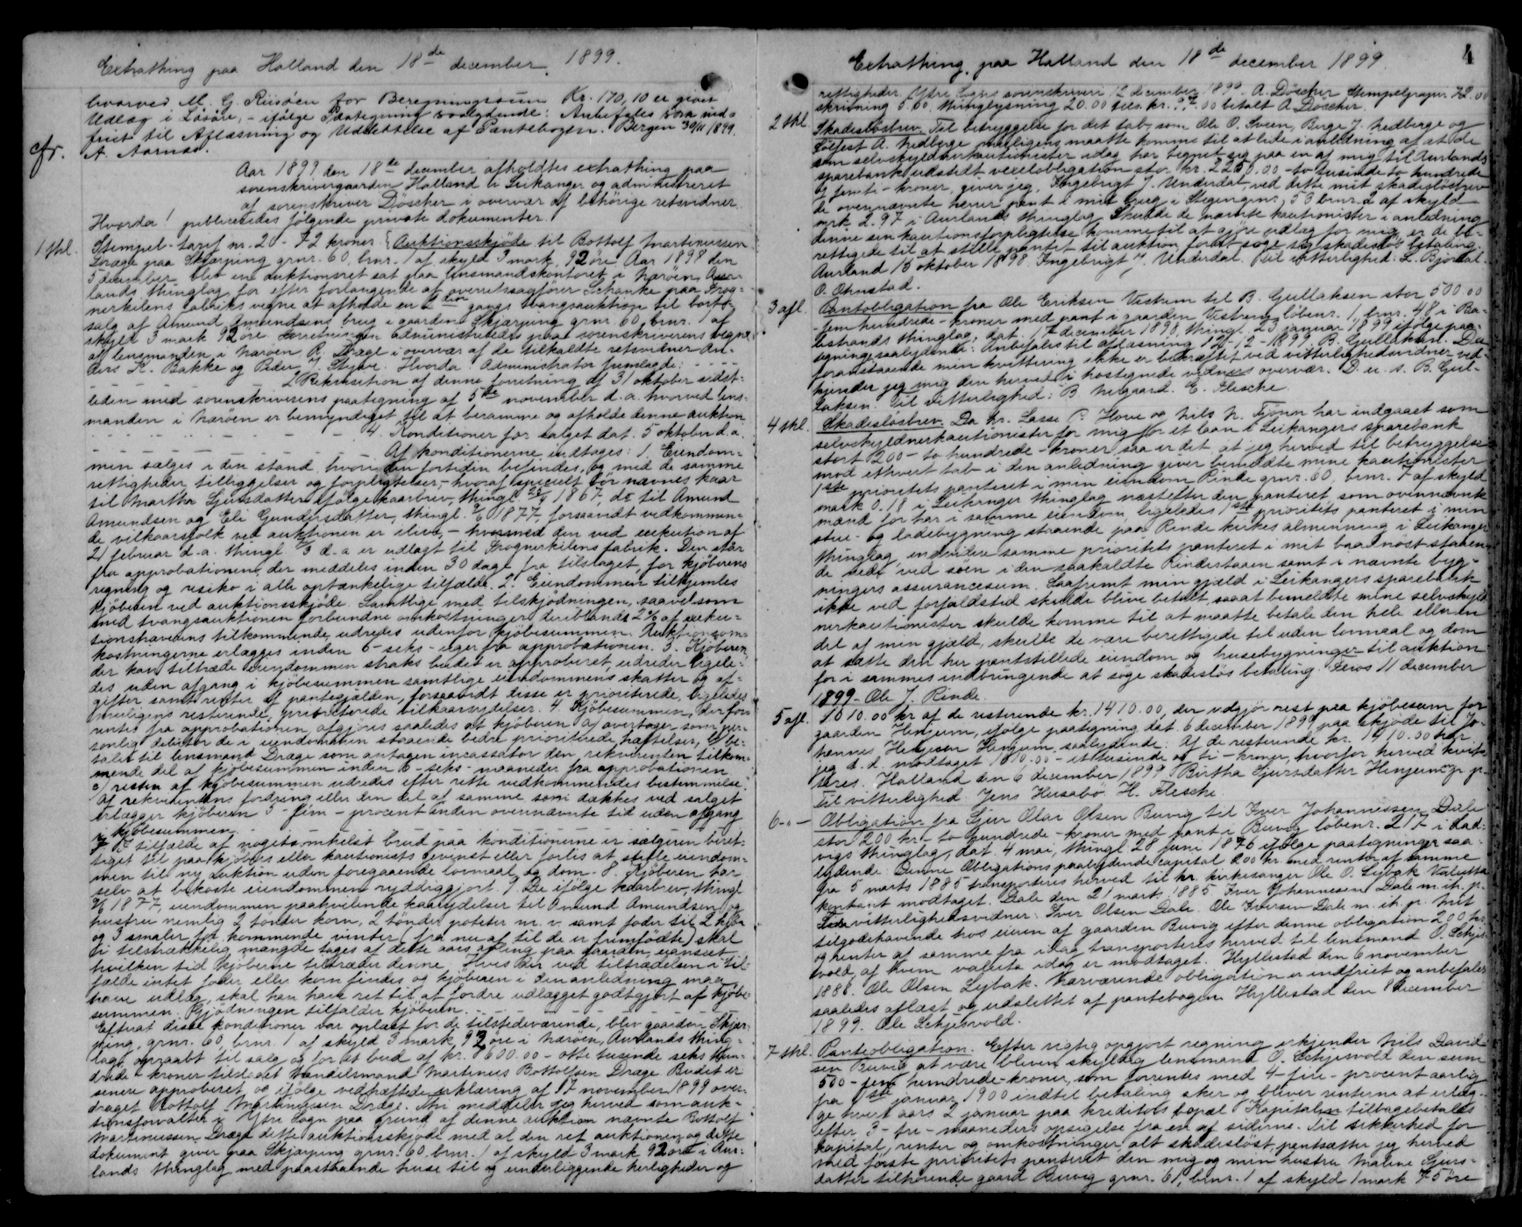 Extrathing paa Holland den 18de december 1899.
hvorved M. G. Riisøen for Beregningssum Kr. 170,10 er givet
Udlæg i Løsøre, - ifølge Paategning saalydende: Anbefales som ind-
friet til Aflæsning og Udslettelse af Pantebogen. Bergen 30/11 1899.
cfr. A. Aarnæs.
Aar 1899 den 18de december afholdtes extrathing paa
sorenskrivergaarden Holland i Leikanger og administreret
af sorenskriver Döscher i overvær af behørige retsvidner.
Hvorda! publiceredes følgende private dokumenter:
1 skl. Stempel-tarif nr. 2 - 72 kroner. Auktionsskjøde til Bottolf Martinussen
Dræge paa Skjærping grnr. 60, brnr. 1 af skyld 3 mark 92 øre. Aar 1898 den
5 december blev en auktionsret sat paa lensmandskontoret i Nærøen, Aur-
lands thinglag for efter forlangende af overretssagfører Schanke paa Frog-
nerkilens fabriks vegne at afholde en 2den gangs tvangsauktion til bort-
salg af Amund Amundsens brug i gaarden Skjærping grnr. 60, brnr. 1 af
skyld 3 mark 92 øre. Forretningen administreredes paa sorenskriverens vegne
af lensmanden i Nærøen R. Dræge i overvær af de tilkaldte retsvidner An-
ders K. Bakke og Peder J. Stybe. Hvorda Administrator fremlagde: - - - -
- - - - - 2 Rekvisition af denne forretning af 31 oktober sidst-
leden med sorenskriverens paategning af 5te november d. a. hvorved lens-
manden i Nærøen er bemyndiget til at beramme og afholde denne auktion
- - - - - 4. Konditioner for salget dat. 5 oktober d. a.
- - - - - Af konditionerne indtages: 1. Eiendom-
men sælges i den stand, hvori den fortiden befindes, og med de samme
rettigheder, tilliggelser og forpligtelser, - hvoraf specielt bør nævnes kaar
til Martha Sjursdatter ifølge kaarbrev, thingl. 1867, do til Amund
Amundsen og Eli Gundersdatter, thingl. 2/6 1877, forsaavidt vedkommen-
de vilkaarsfolk ved auktionen er ilive, - hvormed den ved exekution af
21 februar d. a. thingl. 2/3 d. a. er udlagt til Frognerkilens fabrik. Den staar
fra approbationen, der meddeles inden 30 dage fra tilslaget, for kjøberens
regning og risiko i alle optænkelige tilfælde. 2. Eiendommen tilhjemles
kjøberen ved auktionsskjøde. Samtlige med tilskjødningen, saavelsom
med tvangsauktionen forbundne omkostninger, deriblandt 2 % af exeku-
tionshaverens tilkommende, udredes udenfor kjøbesummen. Auktionsom-
kostningerne erlægges inden 6 - seks - uger fra approbationen. 3. Kjøberen,
der kan tiltræde eiendommen straks budet er approberet, udreder ligele-
des uden afgang i kjøbesummen samtlige eiendommens skatter og af-
gifter samt renter af pantegjælden, forsaavidt disse er prioriterede, ligeledes
muligens resterende, prioriterede vilkaarsydelser. 4. Kjøbesummen, der for-
rentes fra approbationen afgjøres saaledes at kjøberen a) overtager som per-
sonlig debitor de i eiendommen staaende bedre prioriterede hæftelser, b) be-
taler til lensmand Dræge som antagen incassator den rekvirenten tilkom-
mende del af kjøbesummen inden 6 - seks - maaneder fra approbationen
c) resten af kjøbesummen udredes efter rette vedkommendes bestemmelse.
Af rekvirentens fordring eller den del af samme som dækkes ved salget
erlægger kjøberen 5 - fem - procent inden overnævnte tid uden afgang
i kjøbesummen. - - - - -
7. I tilfælde af nogetsomhelst brud paa konditionerne er sælgeren beret-
tiget til paa kjøbers eller kautionists gevinst eller forlis at stille eiendom-
men til ny auktion uden foregaaende lovmaal og dom. 8. Kjøberen har
selv at bekoste eiendommen ryddiggjort. 9. De ifølge kaarbrev, thingl.
2/6 1877, eiendommen paahvilende kaarydelser til Amund Amundsen og
husfrue nemlig 2 tønder korn, 2 tønder poteter m. v. samt foder til 2 kjør
og 3 smaler for kommende vinter (fra nu af til de er fremfødte) skal
i tilstrækkelig mængde tages af dette aars avling paa gaarden, uanset
hvilken tid kjøberne tiltræder denne. Hvis der ved tiltrædelsen i til-
fælde intet foder eller korn findes og kjøberen i den anledning maa
have udlæg, skal han have ret til at fordre udlægget godtgjort af kjøbe-
summen. Kjødningen tilfalder kjøberen. - - - - -
Eftirat disse konditioner var oplæst for de tilstedeværende, blev gaarden Skjær-
ping, grnr. 60, brnr. 1 af skyld 3 mark 92 øre i Nærøen, Aurlands thing-
lag, opraabt til salg og for et bud af kr. 8600.00 - otte tusinde seks hun-
drede - kroner tilslaaet Handelsmand Martinus Bottolfsen Dræge. Budet er
senere approberet og ifølge vedhæftede erklæring af 17 november 1899 over-
draget Bottolf Martinussen Dræge. Thi meddeler jeg herved som auk-
tionsforvalter i Ytre Sogn paa grund af denne auktion nævnte Bottolf
Martinussen Dræge dette auktionsskjøde med al den ret auktionen og dette
dokument giver paa Skjærping grnr. 60, brnr. 1 af skyld 3 mark 92 øre i Aur-
lands thinglag med paastaaende huse til og underliggende herligheder og
Extrathing paa Holland den 18de december 1899.
4
rettigheder. Ytre Sogns sorenskriveri 12 december 1899. A. Döscher. Stempelpapir 72.00
skrivning 5.60 thinglysning 20.00 betalt A. Döscher.
2 skl. Skadesløsbrev. Til betryggelse for det tab, som Ole O. Sveen, Børge J. Nedberge og
Tolfest A. Nedberge muligens maatte komme til at lide i anledning af at de
som selvskyldnerkautionister idag har tegnet sig paa en af mig til Aurlands
sparebank udstedt vexelobligation stor kr. 2250.00 - to tusinde to hundrede
og femti - kroner, giver jeg, Ingebrigt J. Underdal, ved dette mit skadesløsbrev
de overnævnte herrer pant i mit brug i Stegen grnr. 53 brnr. 2 af skyld
mrk. 2.97 i Aurlands thinglag. Skulde de nævnte kautionister i anledning
denne sin kautionsforpligtelse komme til at gjøre udlæg for mig, er de be-
rettigede til at stille pantet til auktion for at søge sig skadesløs betaling.
Aurland 13 oktober 1898. Ingebrigt J. Underdal. Til vitterlighed: L. Bjørdal.
O. Ohnstad.
3 afl. Pantobligation fra Ole Eriksen Vestrum til B. Gullaksen stor 500.00
- fem hundrede - kroner med pant i gaarden Vestrum løbenr. 1, brnr. 48 i Ba-
lestrands thinglag, dat. 17 december 1898 thingl. 23 januar 1899 ifølge paa-
tegning saalydende: Anbefales til aflæsning 12/12-1899. B. Gullaksen. Da
foranstaaende min kvittering ikke er bekræftet ved vitterlighedsvidner ved-
kjender jeg mig den herved i hostegnede vidners overvær. D. u. s. B. Gul-
laksen. Til vitterlighed: B. Nesgaard. E. Flesche.
4 skl. Skadesløsbrev. Da hr. Lasse P. Flore og Nils N. Fjorn har indgaaet som
selvskyldnerkautionister for mig for et laan i Leikangers sparebank
stort 200 - to hundrede - kroner, saa er det at jeg herved til betryggelse
mod ethvert tab i den anledning giver bemeldte mine kautionister
1ste prioritets panteret i min eiendom Rinde grnr. 30, brnr. 7 af skyld
mark 0.18 i Leikanger thinglag næstefter den panteret som ovennævnte
mænd før har i samme eiendom, ligeledes 1ste prioritets panteret i min
stue- og ladebygning staaende paa Rinde kirkes almenning i Leikanger
thinglag, endvidere samme prioritets panteret i mit baadnøst staaen-
de sted ved søen i den saakaldte Rindestøen samt i nævnte byg-
ningers assurancesum. Saafremt min gjæld i Leikangers sparebank
ikke ved forfaldstid skulde blive betalt saa at bemeldte mine selvskyld-
nerkautionister skulde komme til at maatte betale den hele eller en
del af min gjæld, skulle de være berettigede til uden lovmaal og dom
at sætte den her pantstillede eiendom og husebygninger til auktion
for i sammes indbringende at søge skadesløs betaling. Feios 11 december
1899. Ole J. Rinde.
5 afl. 1010.00 kr. af de resterende kr. 1410.00, der udgjør rest paa kjøbesum for
gaarden Henjum, ifølge paategning dat. 6 december 1899 paa skjøde til Jo-
hannes Henjesen Henjum, saalydende: Af de resterende kr. 1410.00 har
jeg d. d. modtaget 1010.00 - ettusinde og ti - kroner, hvorfor herved kvitte-
teres. Holland den 6 december 1899. Birtha Sjursdatter Henjum m. p. p.
Til vitterlighed: Jens Husabø. H. Flesche.
6 - „ - Obligation fra Gjer Olai Olsen Buvig til Iver Johannessen Dale
stor 200 kr. - to hundrede - kroner med pant i Buvig løbenr. 217 i Lad-
vigs thinglag, dat. 4 mai, thingl. 28 juni 1876 ifølge paategninger saa-
lydende: Denne Obligations paalydende kapital 200 kr. med renter af samme
fra 5 marts 1885 transporteres herved til hr. kirkesanger Ole O. Lybak. Valutta
kontant modtaget. Dale den 21 marts 1885. Iver Johannesen Dale m. ih. p.
Til vitterlighedsvidner: Iver Olsen Dale. Ole Iversen Dale m. ih. p. Mit
tilgodehavende hos eieren af gaarden Buvig efter denne obligation 200 kr.
og renter af samme fra idag transporteres herved til lensmand O. Schjel-
vold, af hvem valutta idag er modtaget. Hyllestad den 6 november
1888. Ole Olsen Lybak. Nærværende obligation er indfriet og anbefales
saaledes aflæst og udslettet af pantebogen. Hyllestad den 8 december
1899. Ole Schjelvold.
7 skl. Panteobligation. Efter rigtig opgjort regning erkjender Nils David-
sen Buvig at være bleven skyldig lensmand O. Schjelvold den sum
500 - fem hundrede - kroner, som forrentes med 4 - fire - procent aarlig
fra 1ste januar 1900 indtil betaling sker og bliver renterne at erlæg-
ge hvert aars 2 januar paa kreditors bopæl. Kapitalen tilbagebetales
efter 3 - tre - maaneders opsigelse fra en af siderne. Til sikkerhed for
kapital, renter og omkostninger, alt skadesløst, pantsætter jeg herved
med første prioritets panteret den mig og min hustru Maline Gjers-
datter tilhørende gaard Buvig grnr. 61, brnr. 1 af skyld 1 mark 75 øre